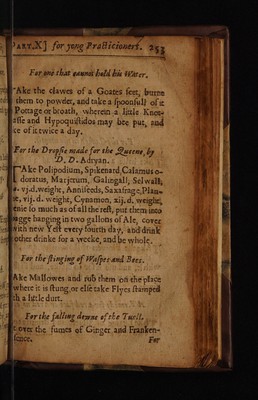 PART.X] for yong Practicioners. 253
For one that cannot hold his Water.
TAke the clawes of a Goates feet, burne
them to powder, and take a spoonfull of it
Pottage or broath, wherein a little Knot-
asse and Hypoquistidos may bee put, and
ce of it twice a day.
For the Dropsie made for the Queene, by
D. D. Adryan.
TAke Polipodium, Spikenard, Calamus o-
doratus, Marjerum, Galingall, Selwall,
vj.d.weight, Annifeeds, Saxafrage, Plan-
e, vij. d. weight, Cynamon, xij. d, weight,
so much as of all the rest, put them into
agge hanging in two gallons of Ale, cover
with new Yest every fourth day, and drink
other drinke for a weeke, and be whole.
For the stinging of Waspes and Bees.
TAke Mallowes and rub them on the place
where it is stung, or else take Flyes stamped
th a little durt.
For the falling downe of the Tuell.
t over the fumes of Ginger and Franken-
sence. For